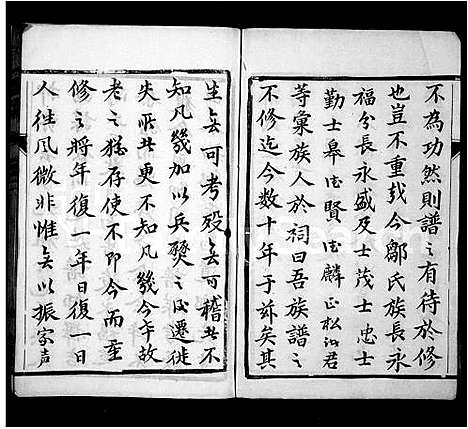 不為功然則譜之有待於修
也豈不重哉今鄒氏族長永
福分長永盛及士茂士忠士
勤士皋光賢光麟正松江君
等彙族人於祠曰吾族譜之
不修迄今數十年于茲矣其
生無可考殁無可稽者不
知凡幾加以兵燹之後遷徙
失所者更不知凡幾今幸故
老之猶存使不即今而重
修之將年復一年日復一日
人往風微非惟無以振家声